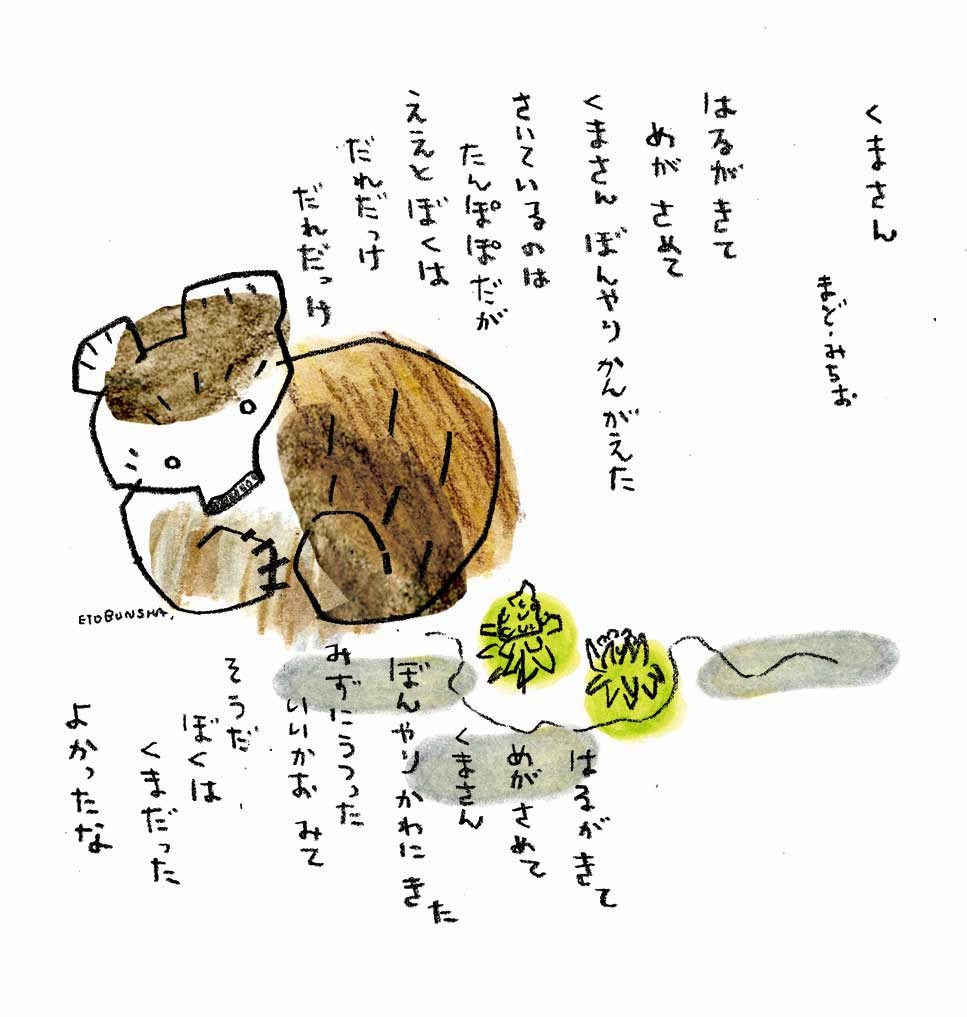 くまさん
まど・みちお
はるが きて
めが さめて
くまさん ぼんやり かんがえた
さいているのは
たんぽぽだが
ええと ぼくは
だれだっけ
だれだっけ
はるが きて
めが さめて
くまさん
ぼんやり かわに きた
みずに うつった
いいかお みて
そうだ
ぼくは
くまだった
よかったな
ETOBUNSHA.